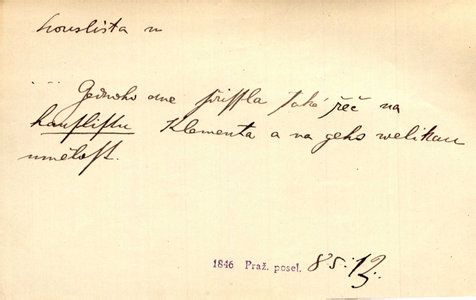 houslista m
... Gednoho dne přissla také řeč na
hauslistu Klementa a na geho welikau
umělost.
1846 Praž. posel. 85. 12.